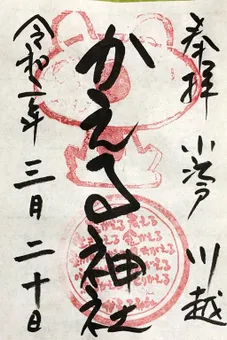 奉拝 小江戸 川越
かえる神社
令和二年 三月 二十日